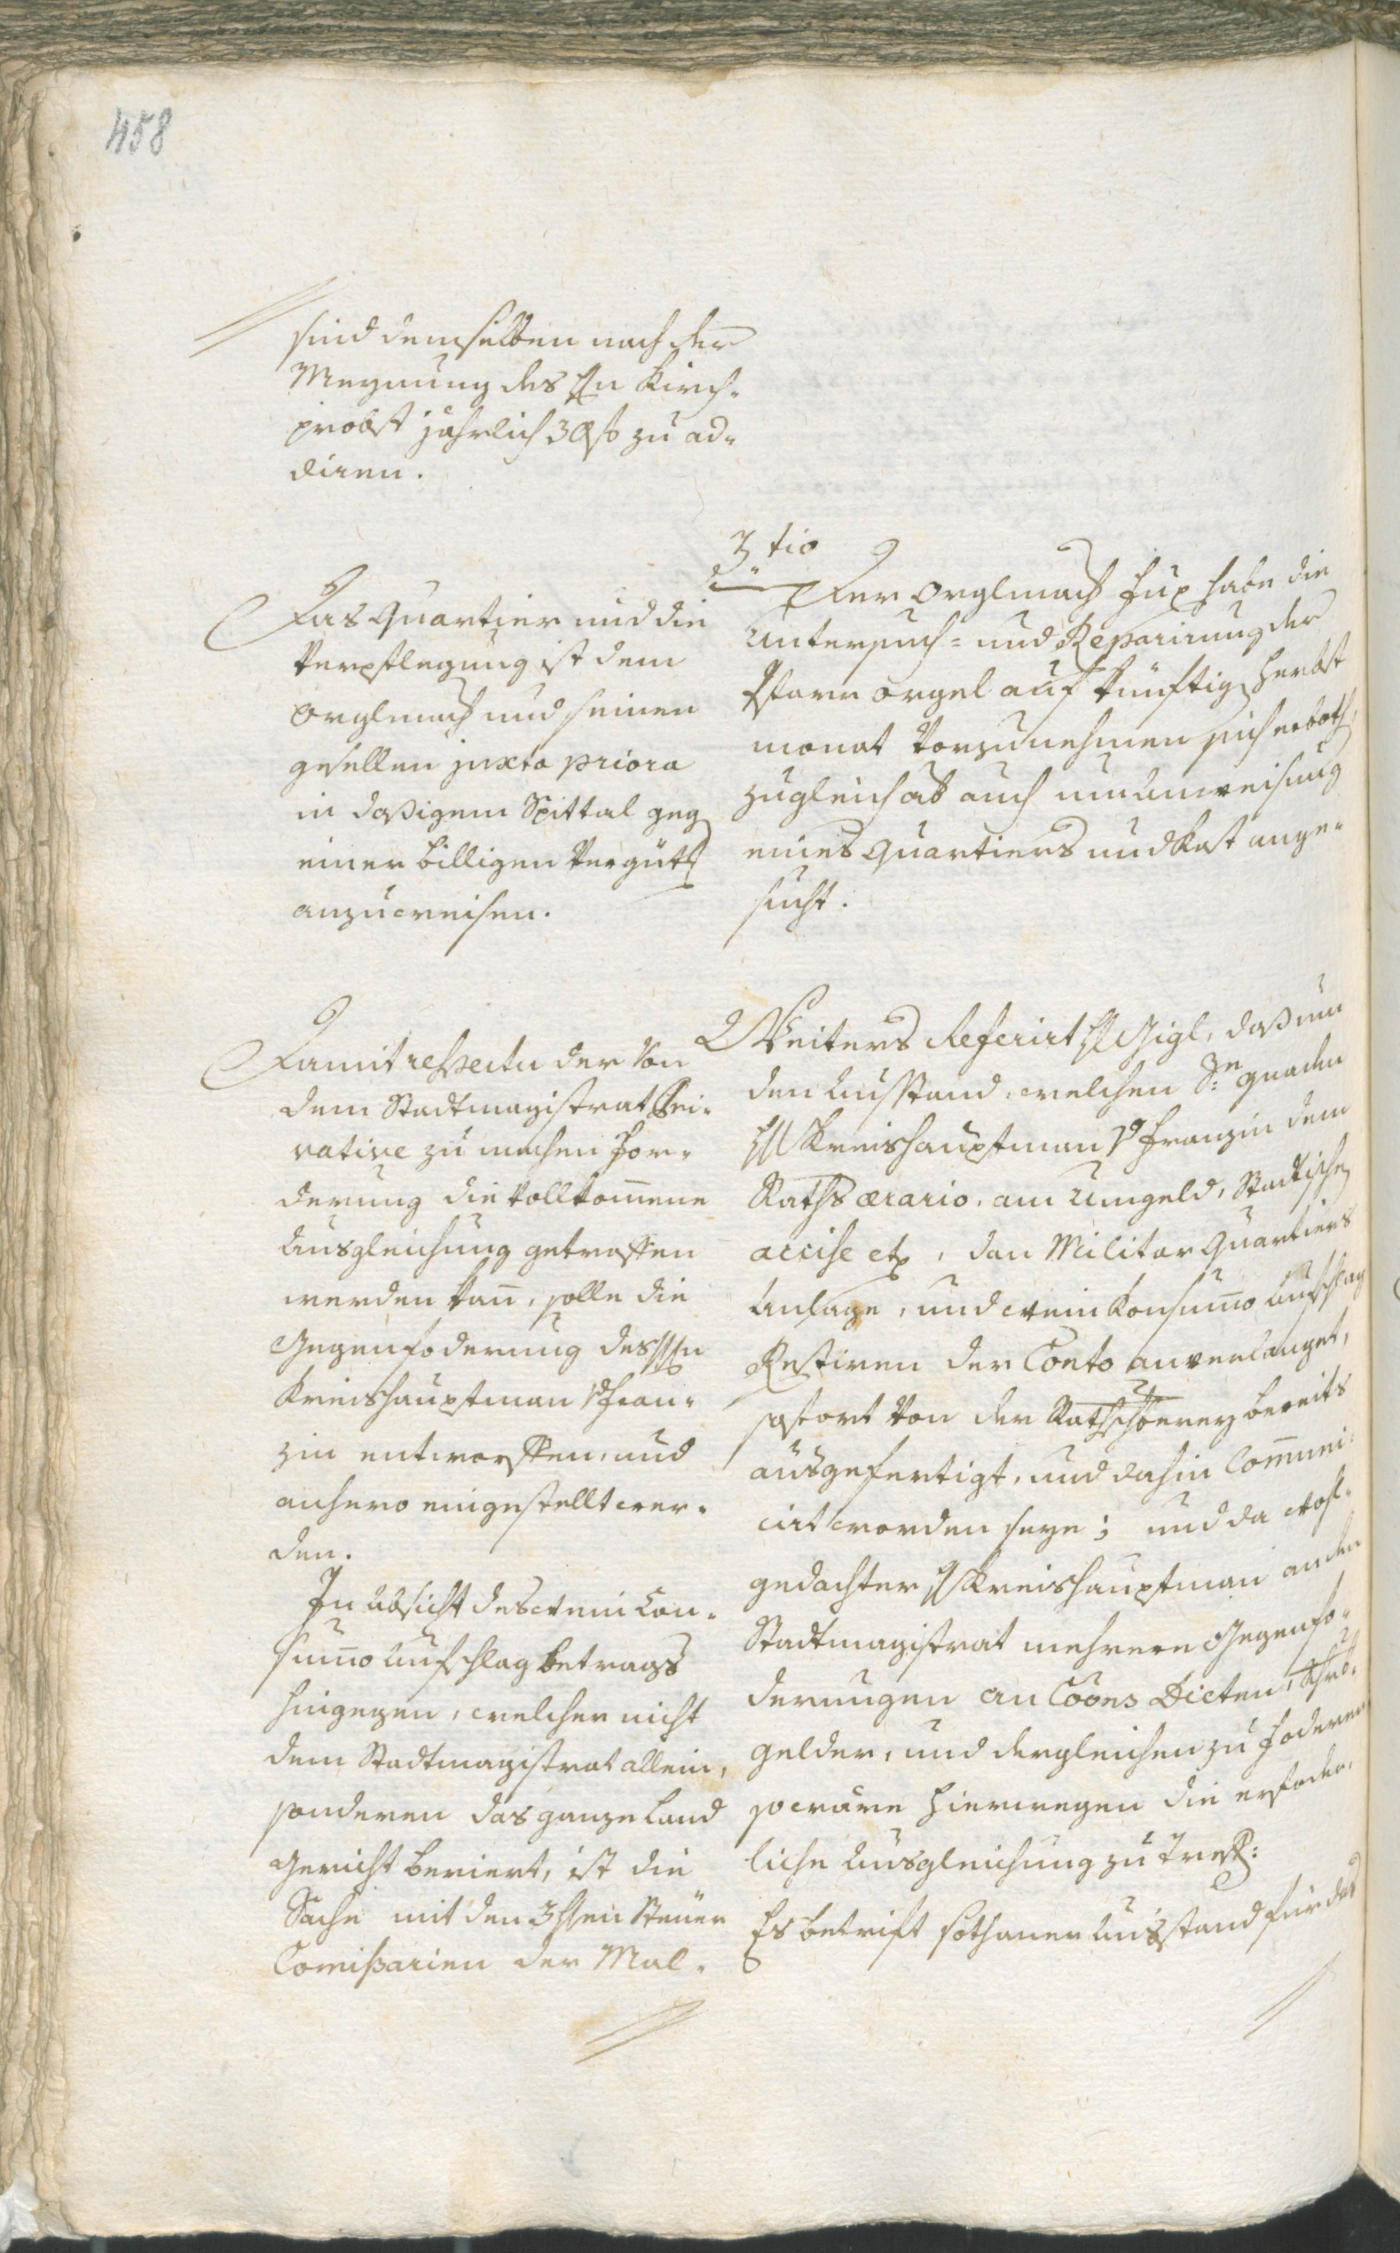 458
sind demselben nach der
Meynung des Hn Kirch-
probst jährlich 30 f zu ad-
diren.
Das Quartier und die
Verpflegung ist dem
Orglmach und seinen
gesellen juxta priora
in daßigem Spittal geg
einer billigen Vergütg
anzuweisen.
Damit respectu der von
dem Stadtmagistrat Pri-
vative zu machen For-
derung die vollkomene
Ausgleichung getroffen
werden kan, solle die
Gegenfoderung des Hn
Kreishauptman v Fran-
zin entworffen, und
anhero eingestellt wer-
den.
In Absicht des Wein Con-
sumo Aufschlag betrags
hingegen, welcher nicht
dem Stadtmagistrat allein,
sonderen das ganze Land
Gericht beriert, ist die
Sache mit den 3 Hhen Steuer
Comißarien der Mal-
3tio
Der Orglmach Fux habe die
Untersuch- und Reparirung der
Pfarr orgel auf künftig Herbst
monat vorzunehmen sich erboth,
zugleich ab auch um Anweisung
eines Quartiers und Kost ange-
sucht.
Weiters Referirt H Gigl, daß um
den Ausstand, welchen Se gnaden
H Kreishauptman v Franzin dem
Raths ærario, am Umgeld, Stadtische
accise etc, dan Militar Quartiers
Anlage, und Wein Konsumo Aufschlag
Restiren der Conto anverlanget,
sofort von der bereits
ausgefertigt, und dahin Communi-
cirt worden seye; und da Wohl-
gedachter H Kreishauptman an den
Stadtmagistrat mehrere Gegenfo-
derungen an Coons Dieten,
gelder, und dergleichen zu foderen
so wäre hierwegen die erfoder-
liche Ausgleichung zu Treff:
Es betrift sothaner Ausstand für das